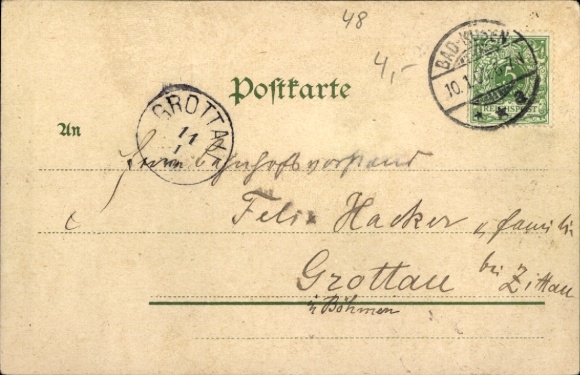 48
4,-
BAD-KÖSEN
10.1.
5
REICHSPOST
GROTTAU
11
1
Postkarte
An
Herrn Bahnhofsvorstand
Felix Hacker u familie
Grottau bei Zittau
i Böhmen